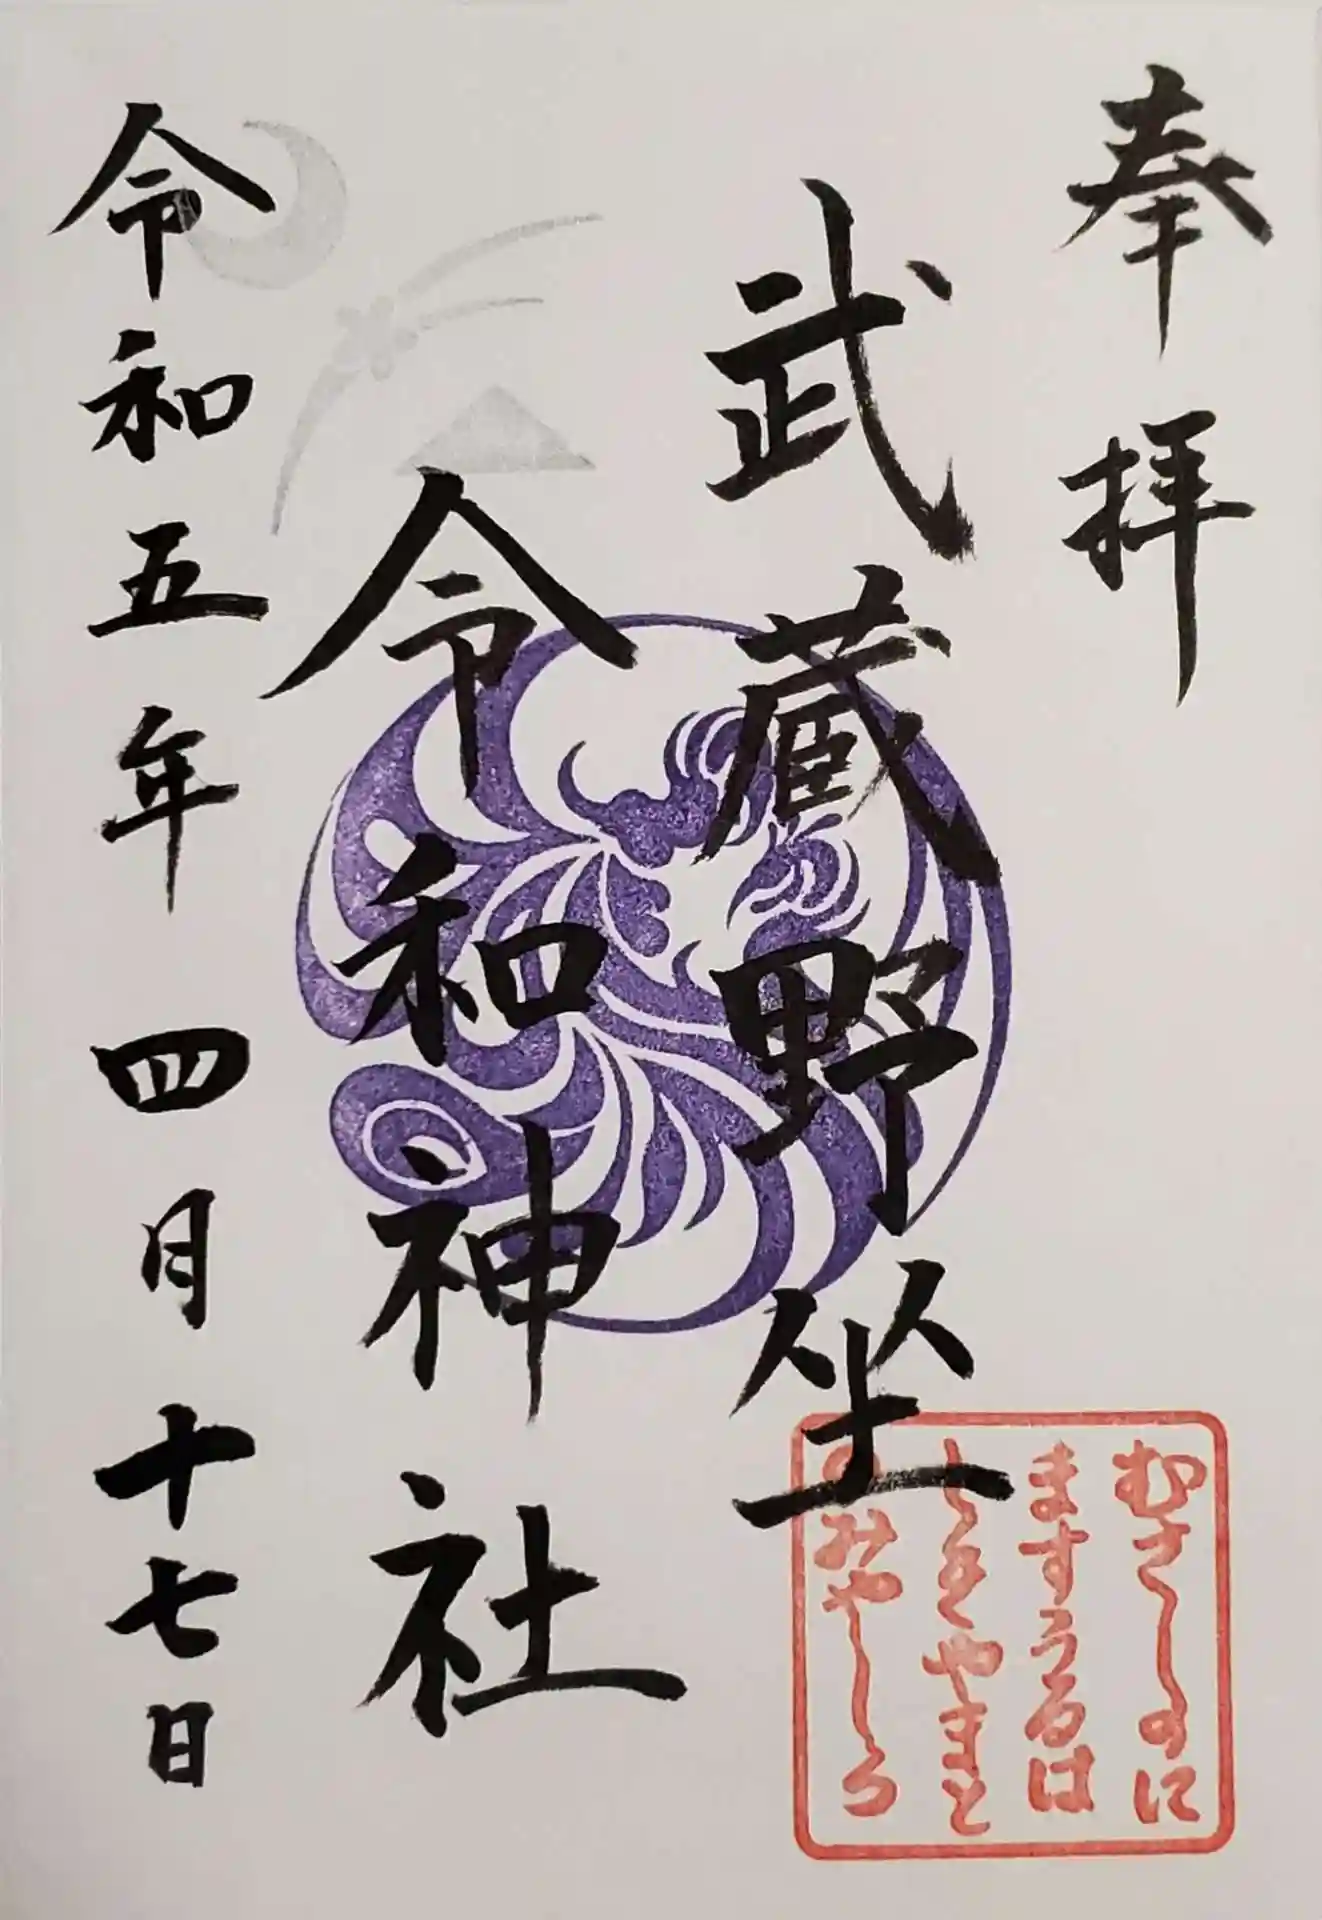 奉拝
武蔵野坐
令和神社
令和五年四月十七日
むさしのに
ますうるは
しきやまと
のみやしろ